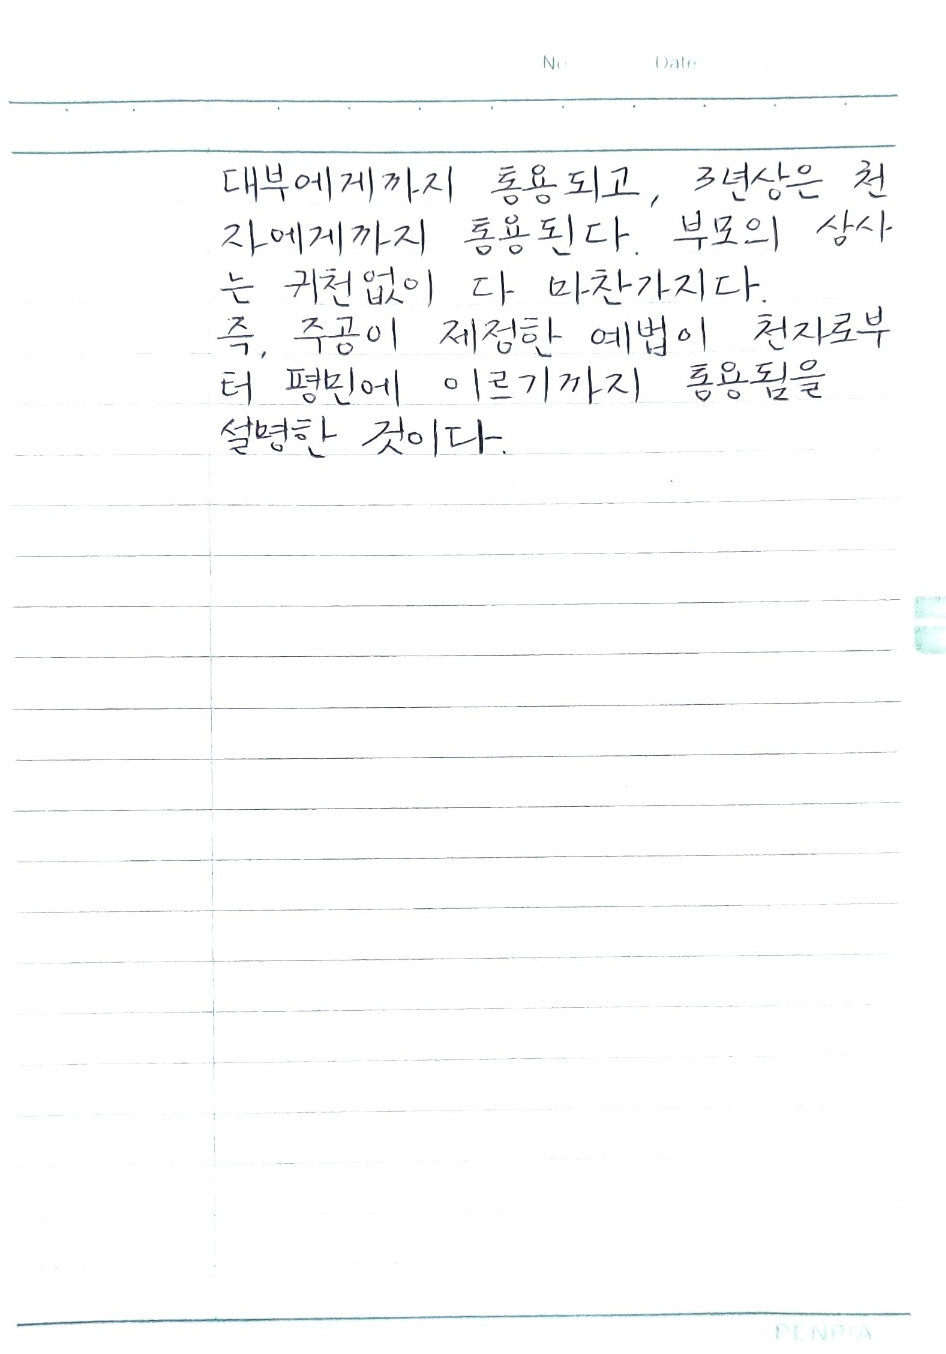 No Date
대부에게까지 통용되고, 3년상은 천
자에게까지 통용된다. 부모의 상사
는 귀천없이 다 마찬가지다.
즉, 주공이 제정한 예법이 천자로부
터 평민에 이르기까지 통용됨을
설명한 것이다.
PENPIA